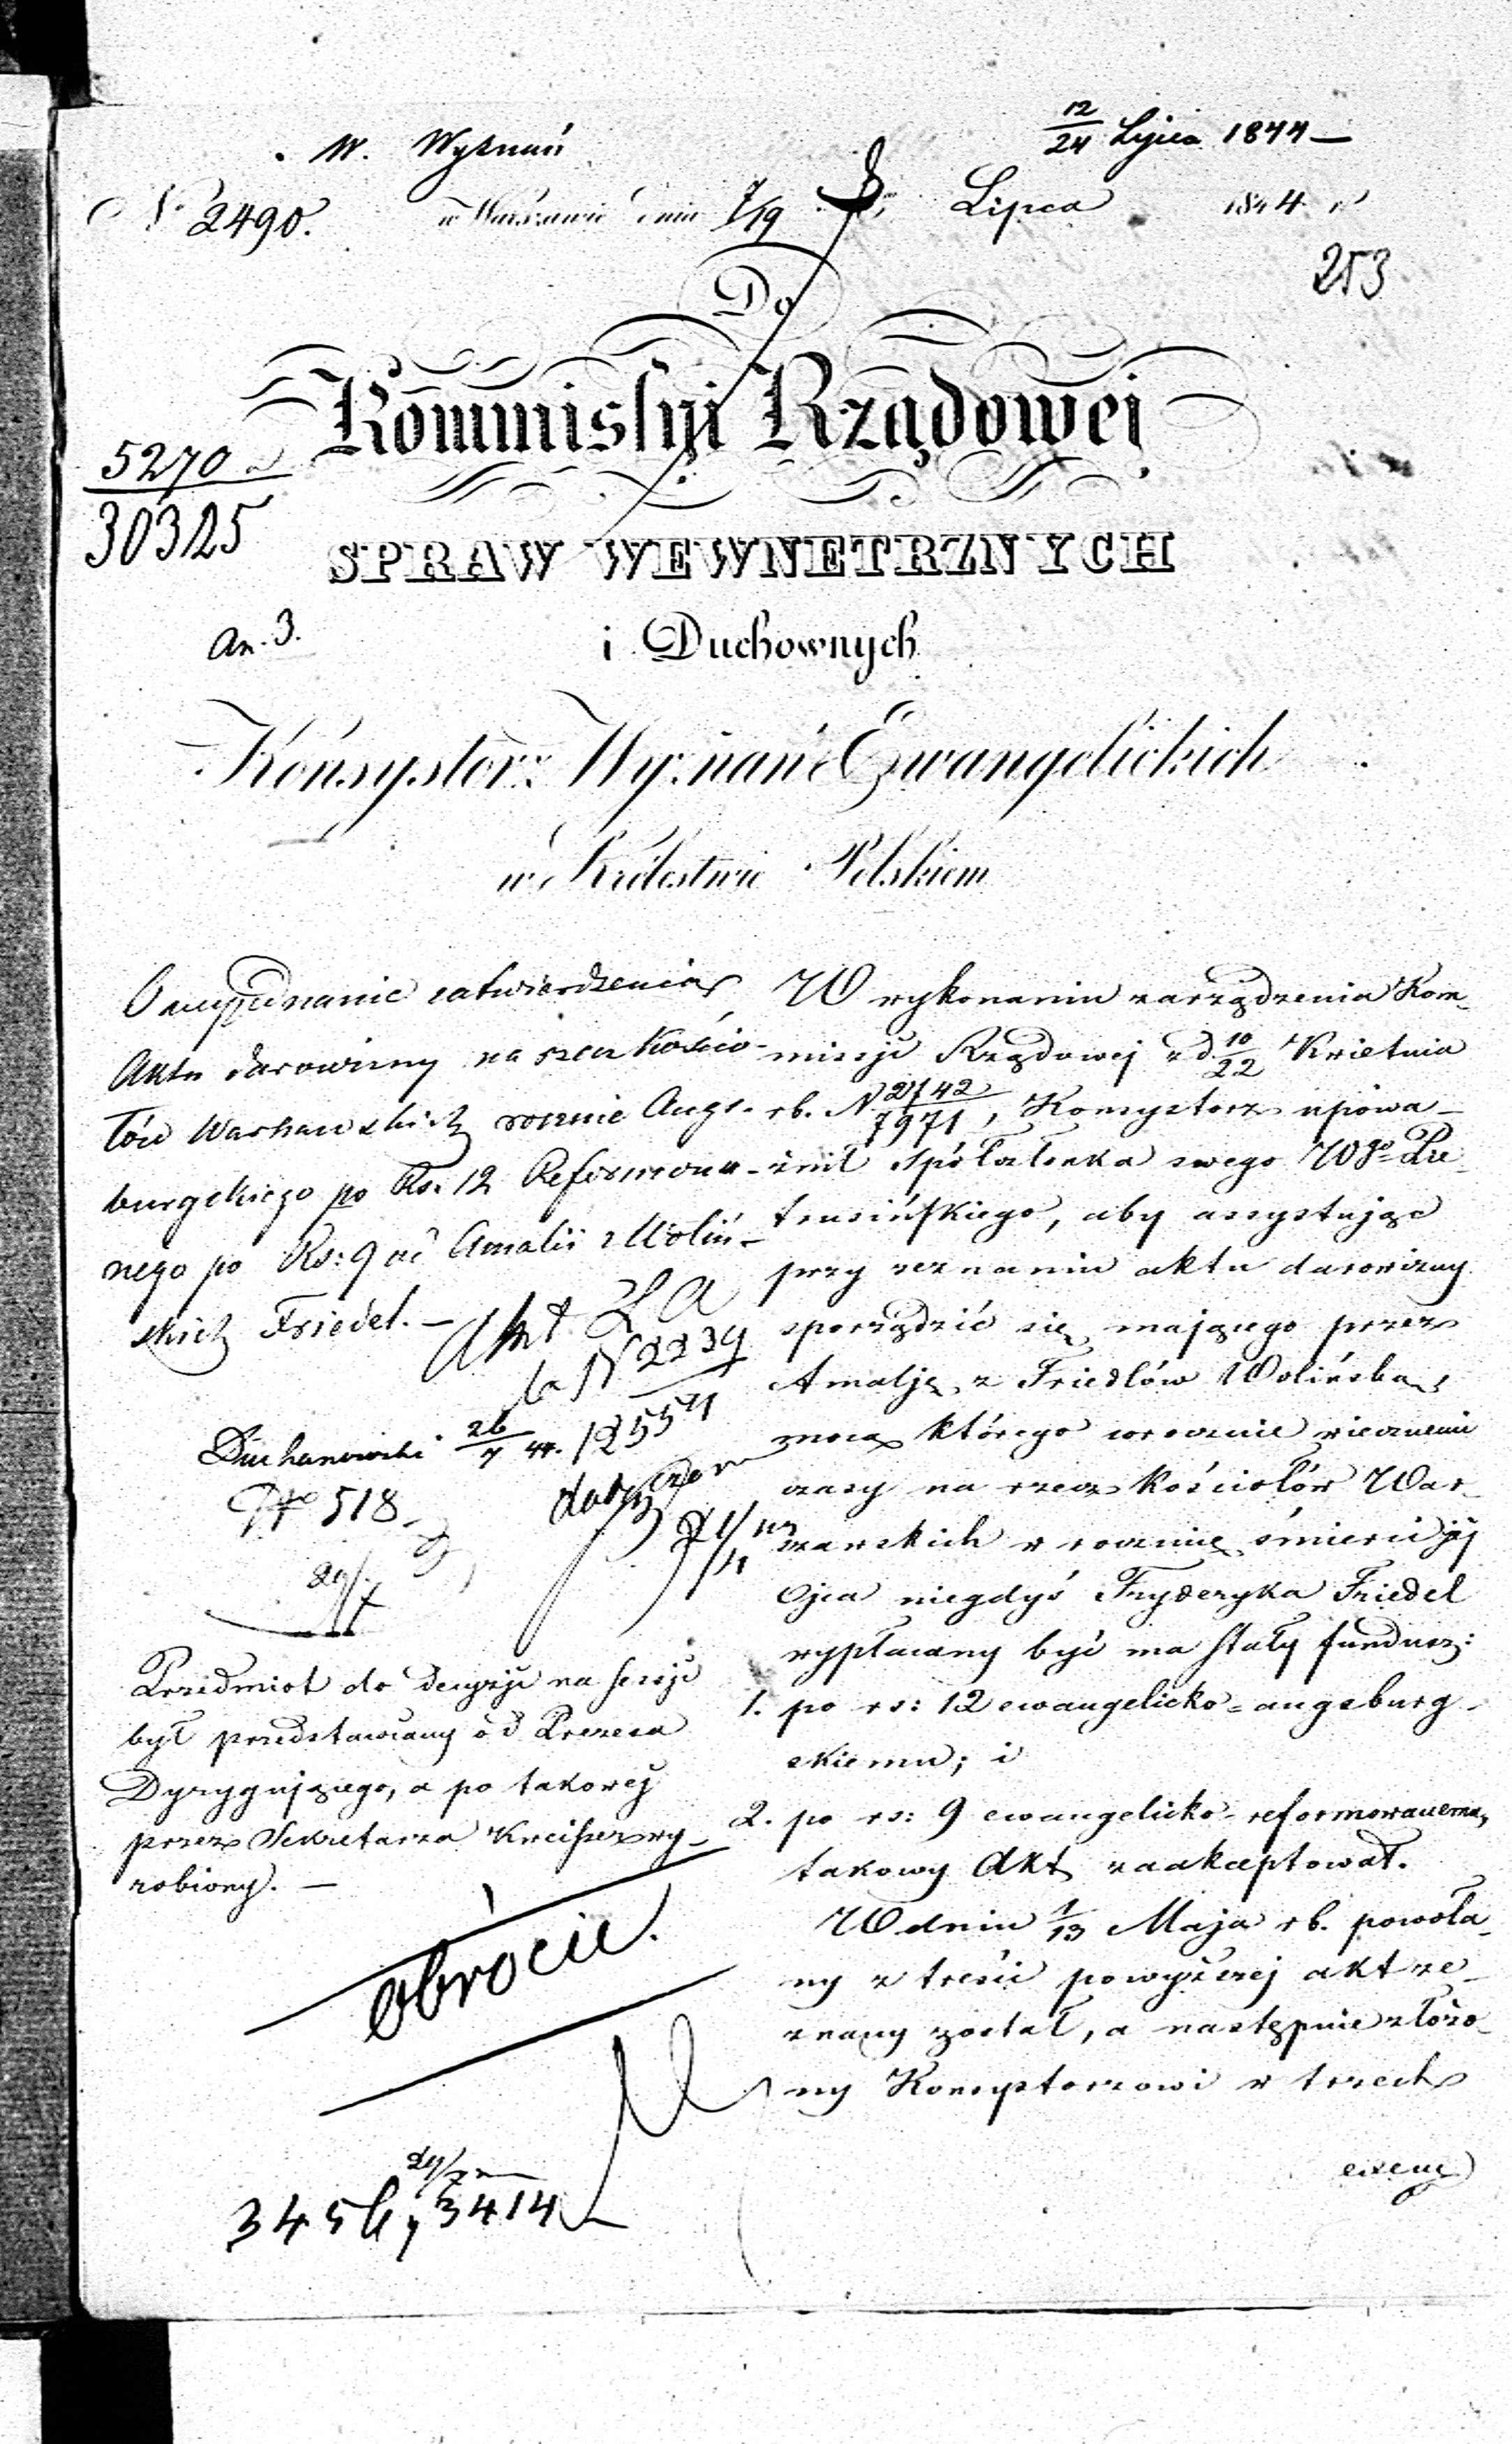 W. Wyznań
12/24 Lipca 1844
№ 2490.
w Warszawie dnia 7/19 Lipca 1844 r
253
Do
Kommissyi Rządowej
5270
30325
SPRAW WEWNĘTRZNYCH
An. 3.
i Duchownych
Konsystorz Wyznań Ewangelickich
w Królestwie Polskiem
O wyjednanie zatwierdzenia
Aktu darowizny na rzecz Kościo-
łów Warszawskich rocznie Augs-
burgskiego po Rs. 12 Reformowa-
nego po Rs: 9 od Amalii z Woliń-
skich Friedel. –
Akt
N 2239
12551
Duchanowski 26/7 44.
№ 518
29/7
Przedmiot do decyzji na sessji
był przedstawiany od Prezesa
Dyrygującego, a po takowej
przez Sekretarza wy-
robiony. –
obrócić.
29/7
3414
W wykonaniu zarządzenia Kom-
missji Rządowej z d 10/22 Kwietnia
rb. N 2142/7971, Konsystorz upowa-
żnił Spółczłonka swego Wgo Pie-
trusińskiego, aby assystując
przy zeznaniu aktu darowizny
sporządzić się mającego przez
Amalję z Friedlów Wolińską,
mocą którego corocznie wiecznemi
czasy na rzecz kościołów War-
szawskich w rocznicę śmierci jéj
ojca niegdyś Fryderyka Friedel
wypłacany być ma stały fundusz:
1. po rs: 12 ewangelicko-augsburg-
skiemu; i
2. po rs: 9 ewangelicko-reformowanemu,
takowy Akt zaakceptował.
W dniu 1/13 Maja rb. powoła-
ny z treści powyższej akt ze-
znany został, a następnie złożo-
ny Konsystorzowi w trzech